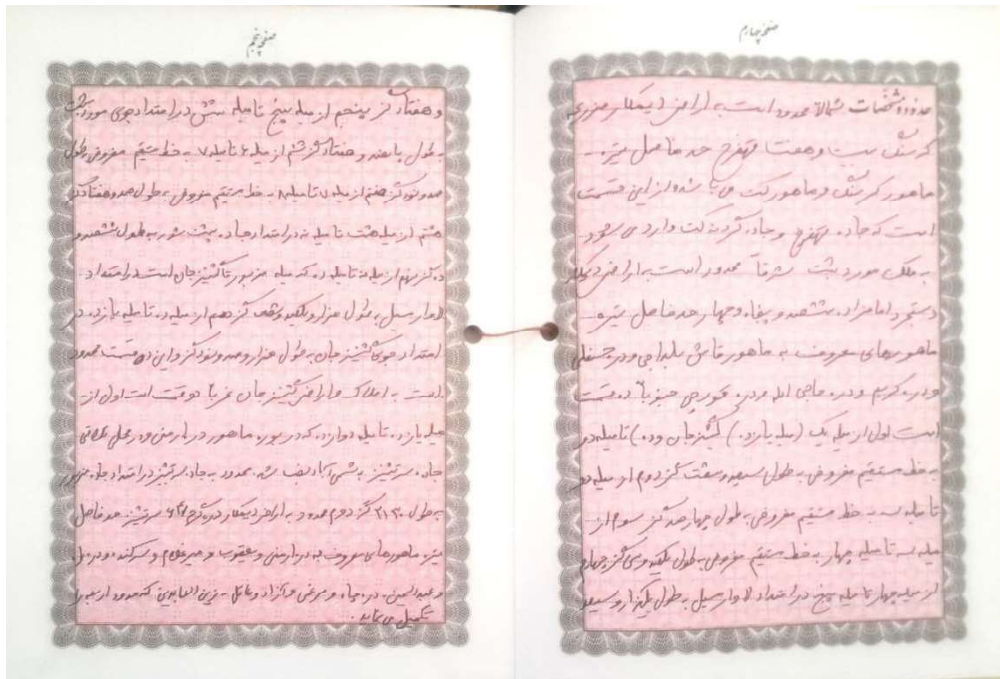 صفحه چهارم
حدود و مشخصات شمالاً محدود است به اراضی دیمکار مزرعه
کرسنگ بیست و هفت قهفرخ حد فاصل تیره
ماهور کرسنگ و ماهور کت می باشد و از این قسمت
است که جاده قهفرخ و جاده گردنه کت وارد می شود
به ملک مورد ثبت شرقاً محدود است به اراضی دیمکار
دستجرد امامزاده ششصد و پنجاه و چهار حد فاصل تیره
ماهورهای معروف به ماهور و دره
و دره کریم و دره حاجی و دره جنوباً ده قسمت
است اول از میله یک (میله یازده) گشنیزجان و ده) تا میله دو
به خط مستقیم مفروض به طول سیصد و هفت گز دوم از میله دو
تا میله سه به خط مستقیم مفروض به طول چهارصد گز سوم از
میله سه تا میله چهار به خط مستقیم مفروض به طول یکصد و سی گز چهارم
از میله چهار تا میله پنج در امتداد سیل به طول یکهزار و سیصد
صفحه پنجم
و هفتاد گز پنجم از میله پنج تا میله شش در امتداد جوی مورد ثبت
به طول پانصد و هفتاد گز ششم از میله ۶ تا میله ۷ به خط مستقیم مفروض به طول
صد و نود گز هفتم از میله ۷ تا میله ۸ به خط مستقیم مفروض به طول صد و هفتاد گز
هشتم از میله هشت تا میله نه در امتداد جاده به طول ششصد و
ده گز نهم از میله نه تا میله ده که میله مزبور تا گشنیزجان است در امتداد
سیل به طول هزار و یکصد و گز دهم از میله ده تا میله یازده در
امتداد جوی گشنیزجان به طول هزار و صد و نود گز و این ده قسمت محدود
است به املاک و اراضی گشنیزجان غرباً دو قسمت است اول از
میله یازده تا میله دوازده که در ماهور دره ارمنی و در محل تلاقی
جاده سرتیشنیز به شمس آباد نصب شده محدود به جاده سرتیشنیز در امتداد جاده مزبور
به طول ۲۱۳۰ گز دوم محدود به اراضی دیمکار سرتیشنیز حد فاصل
تیره ماهورهای معروف به دره ارمنی و یعقوب و و
و عبدالحسین و و به زین العابدین که حدود اربعه را
تکمیل می نماید.